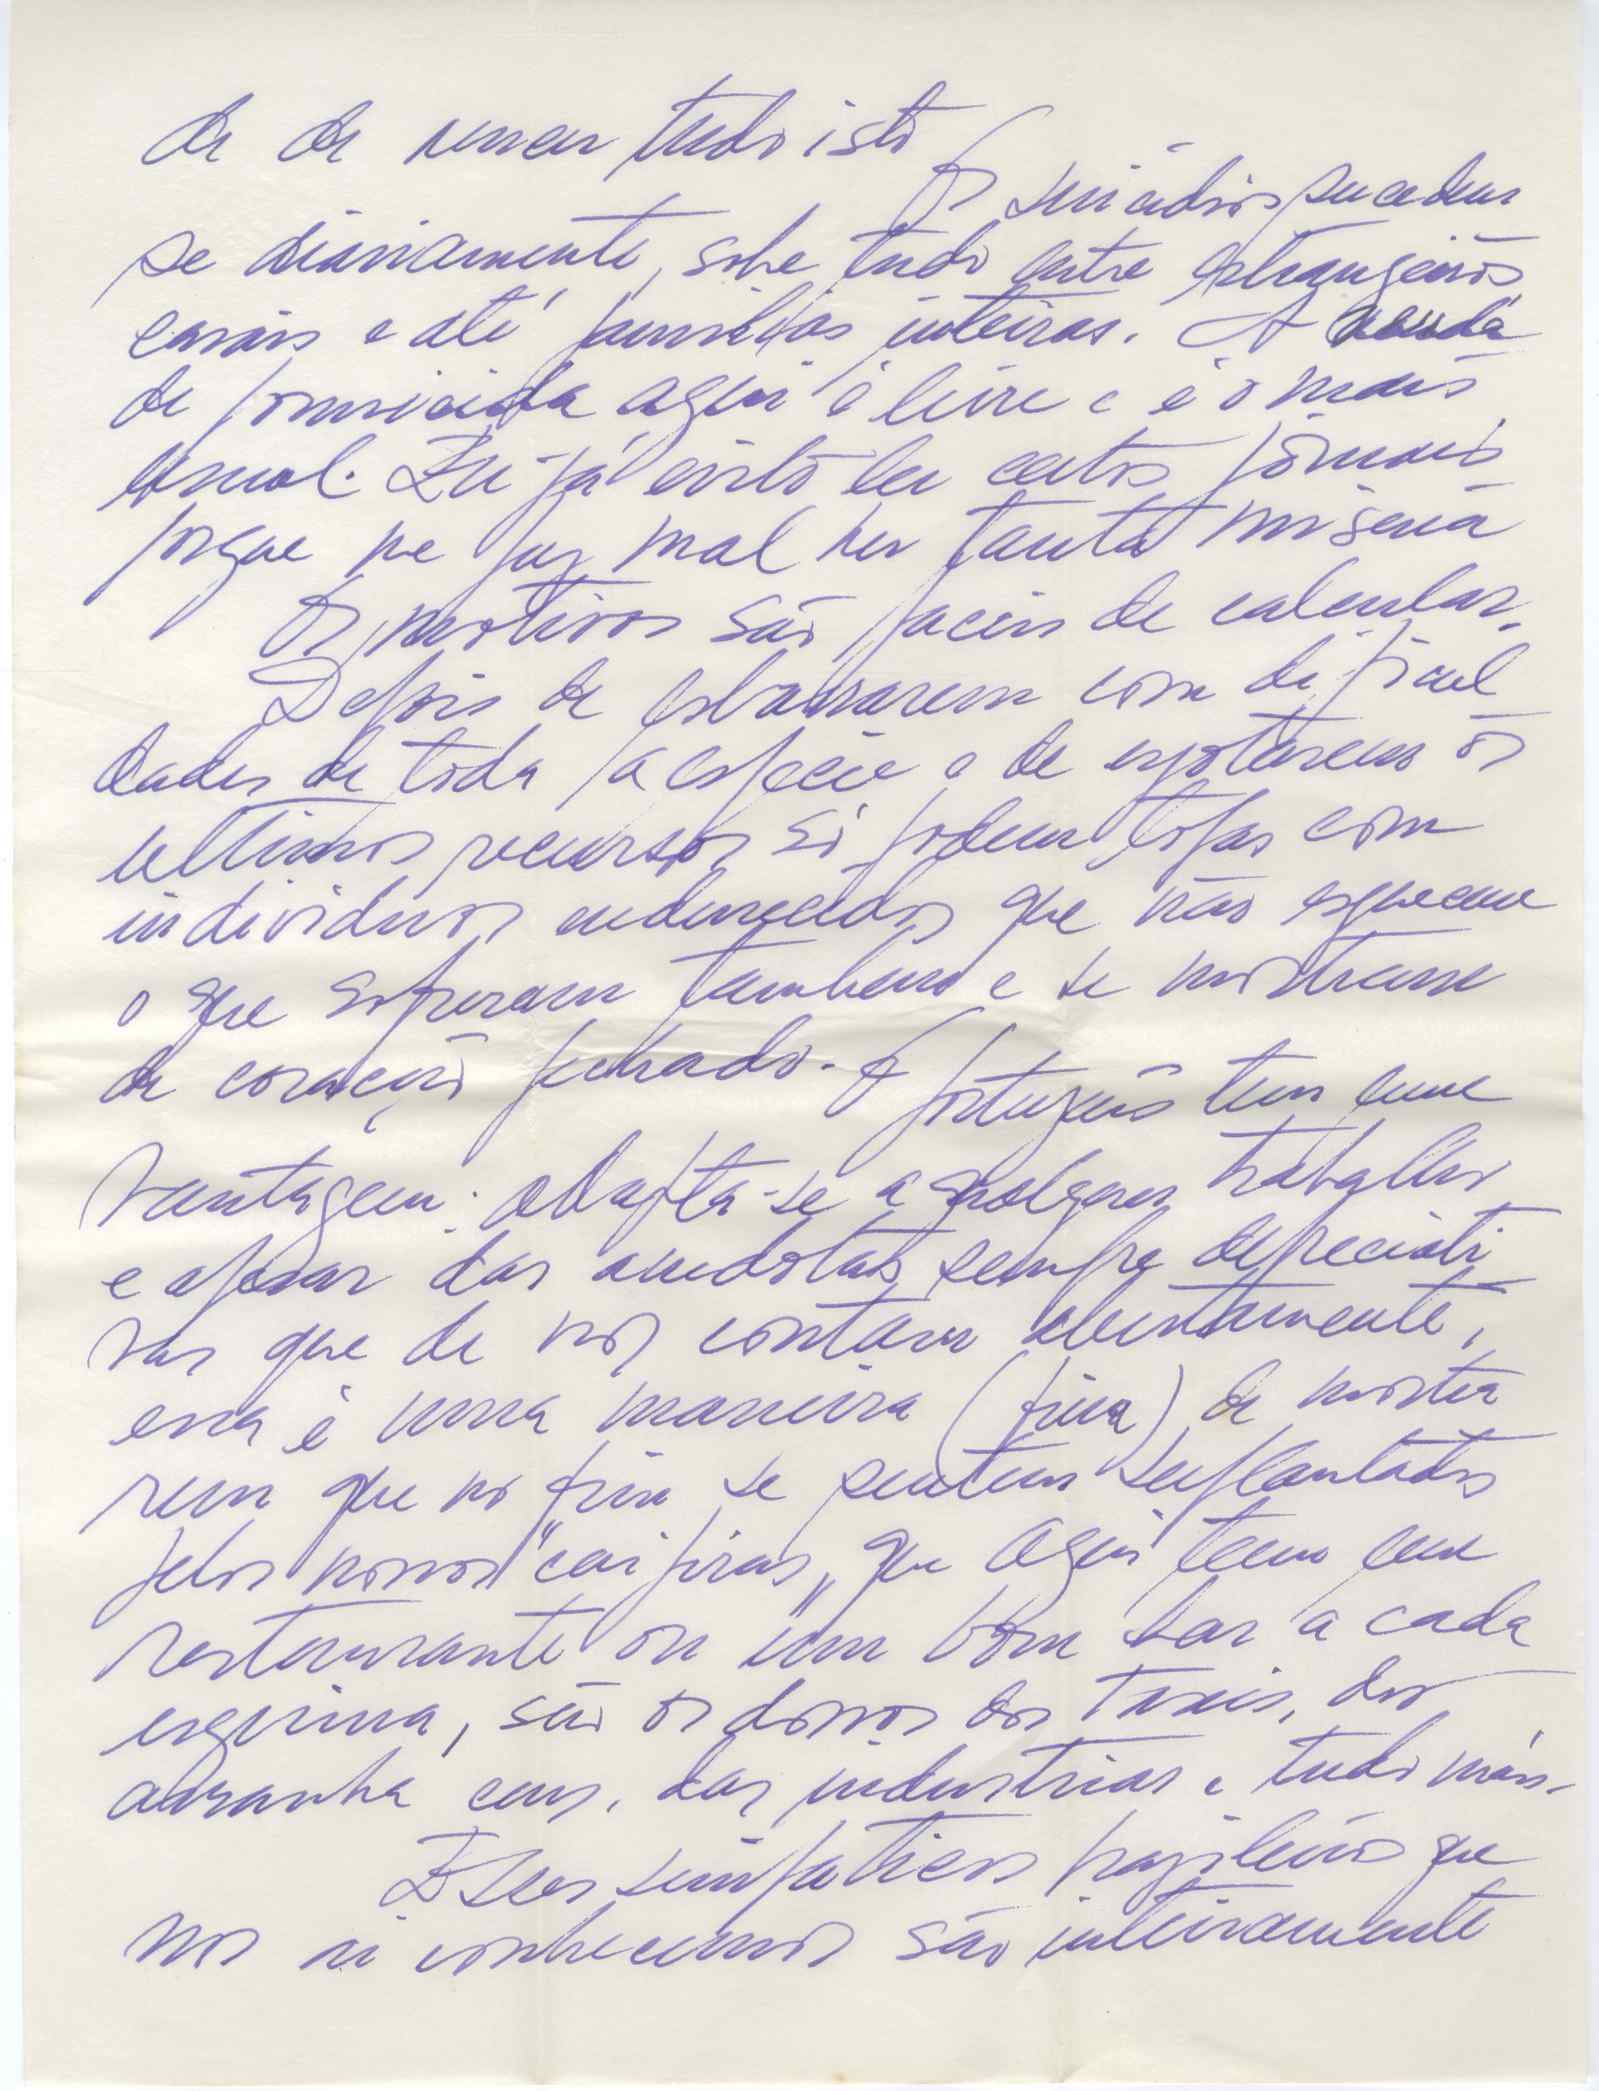 de de vencer tudo isto
Os suicidios sucedem
se diáriamente, sobre tudo entre estrangeiros
casais e até familias inteiras. A venda
de formicida aqui é livre e é o mais
usual. Eu já evito ler certos jornais
porque me faz mal ver tanta miséria
Os motivos são faceis de calcular.
Depois de esbarrarem com dificul
dades de toda a especie e de esgotarem os
ultimos recursos só podem topar com
individuos endurecidos que não esquecem
o que sofreram tambem e se mostram
de coração fechado. O português tem uma
vantagem: adapta-se a qualquer trabalho
e apesar das anedotas sempre depreciati
vas que de nós contam abertamente,
essa é uma maneira (fina) de mostra
rem que no fim se sentem suplantados
pelos nossos "caipiras" que aqui teem um
restaurante ou um bom bar a cada
esquina, são os donos dos taxis, dos
arranha ceus, das industrias e tudo máis.
Esses simpaticos brazileiros que
nos ai conhecemos são inteiramente